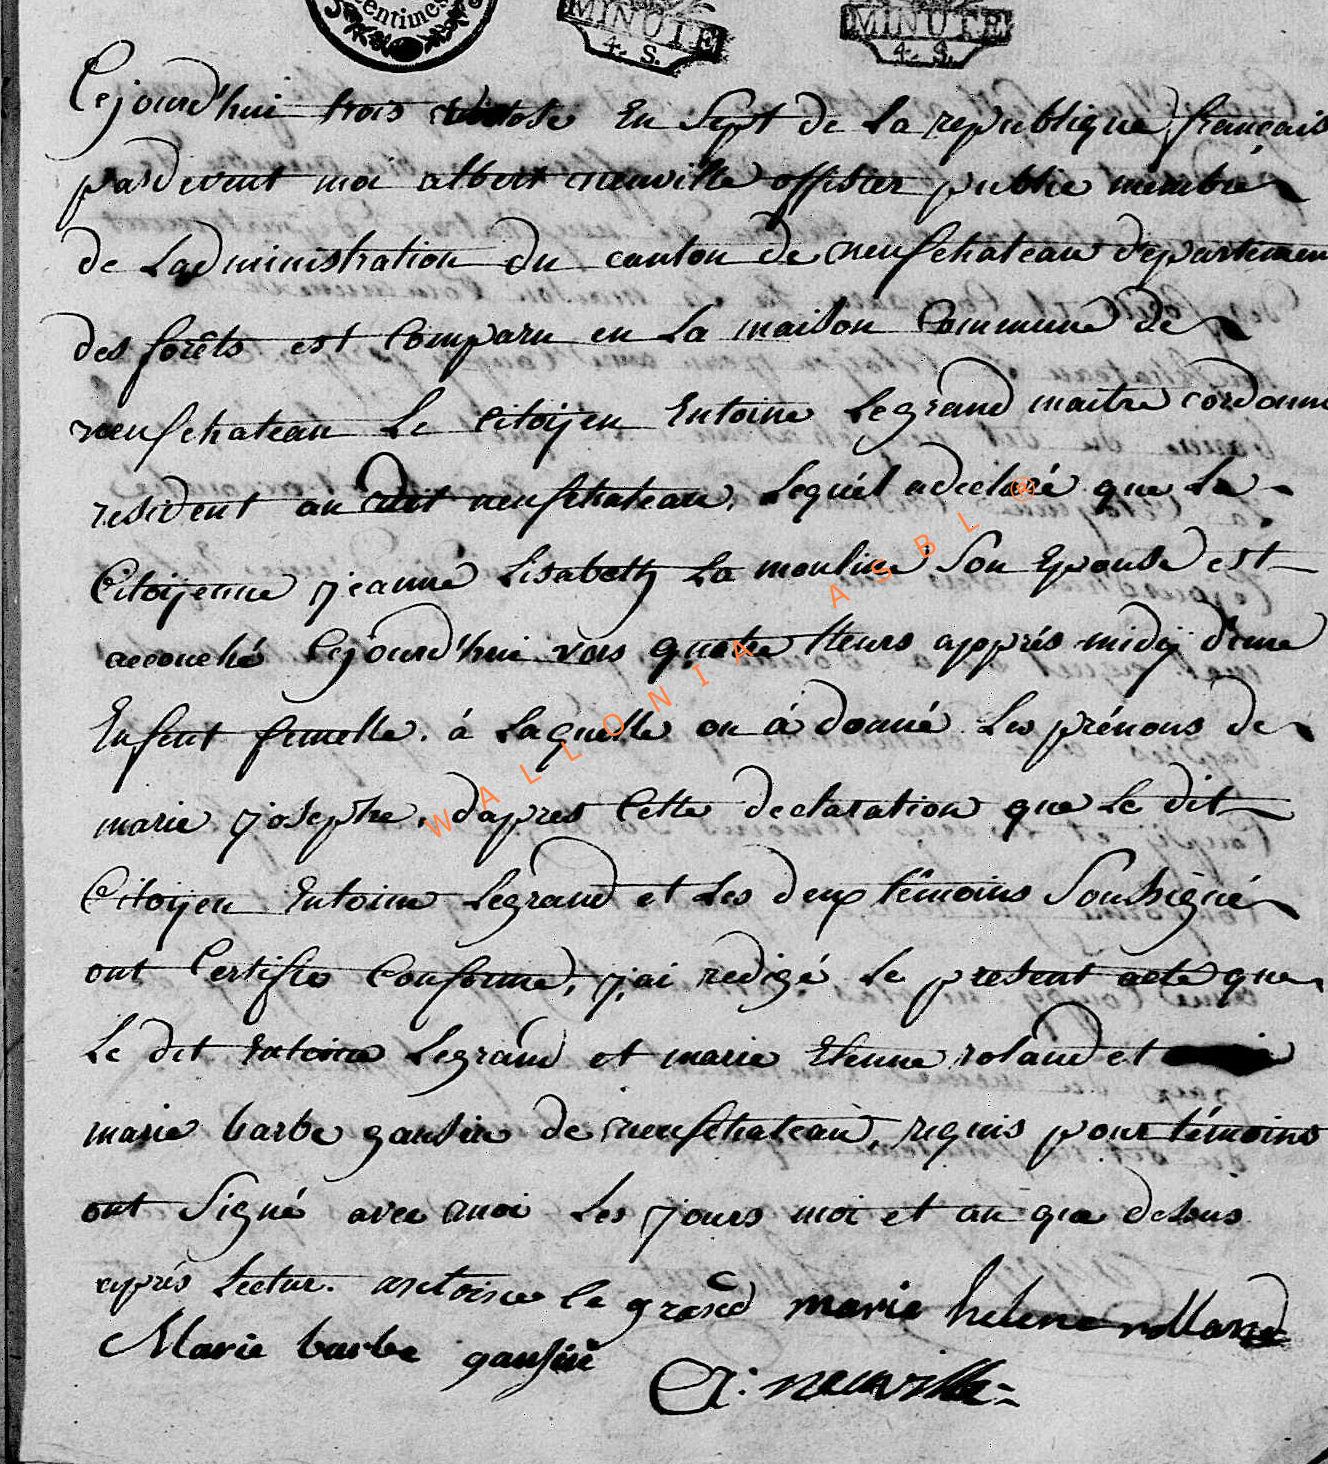 centimes
MINUTE
4. S.
MINUTE
4. S.
Cejourd'hui trois En Sept de La republique français
pardevent moi albert neuville offister public membre
de Ladministration du canton de neufchateau departemen
des forêts est Comparu en La maison Commune de
neufchateau Le Citoÿen Entoine Legrand maitre cordonni
resident au dit neufchateau, Lequel adeclaré que La
Citoÿenne jeanné Lisabeth La mouline Son Epouse est
accouché Cejourd'hui vers quatre Heurs apprés midÿ d'une
Enfent femelle. à Laquelle on á donné Les prénoms de
marie josephe, d'apres Cette declaration que Le dit
Citoÿen Entoine Legrand et Les deux témoins Soussigné
ont Certifié Conforme, j'ai redigé Le present acte que
Le dit Entoine Legrand et marie Elenne roland et
marie barbe gausin de neufchateau, requis pour témoins
ont Signé avec moi Les jours moi et an que dessus
aprés Lecture. antoine le grand marie helene rolland
Marie barbe gausin
A: neuville
WALLONIA ASBL ®